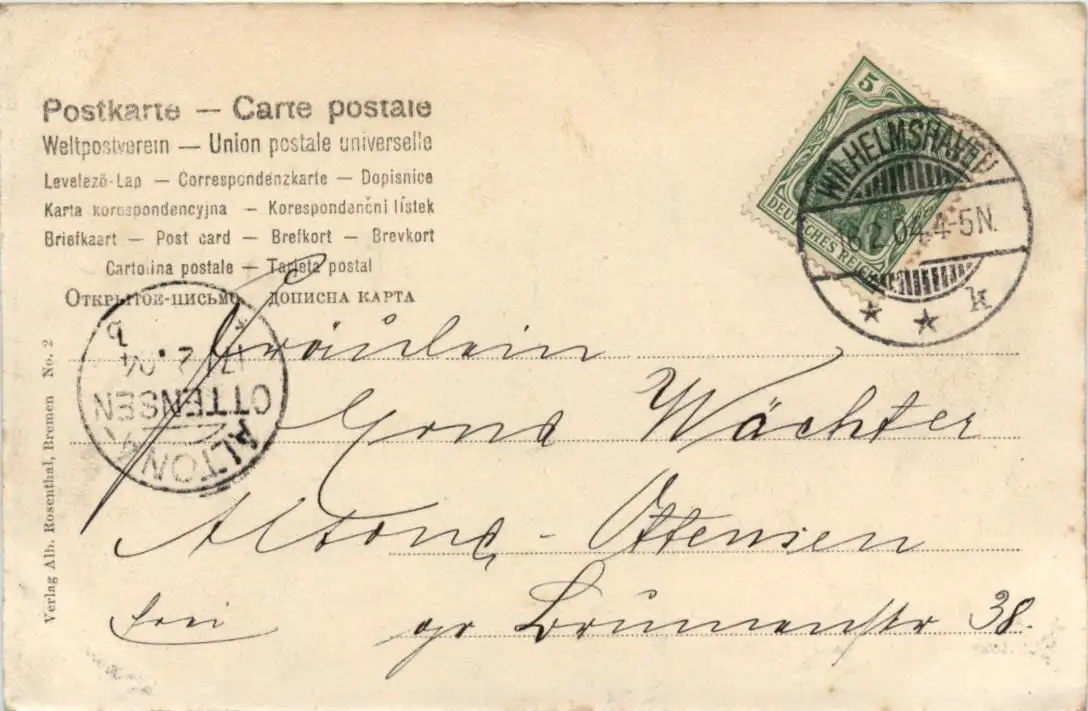 Postkarte — Carte postale
Weltpostverein — Union postale universelle
Levelező-Lap — Correspondenzkarte — Dopisnice
Karta korespondencyjna — Korespondenční lístek
Briefkaart — Post card — Brefkort — Brevkort
Cartolina postale — Tarjeta postal
Открытое-письмо дописна карта
5
DEUTSCHES REICH
WILHELMSHAVEN
16.2.04.4-5N.
* * k
* b
17.2.04
OTTENSEN
ALTONA
Fräulein
Erna Wächter
Altona - Ottensen
frei gr Brunnenstr 38.
Verlag Alb. Rosenthal, Bremen No. 2